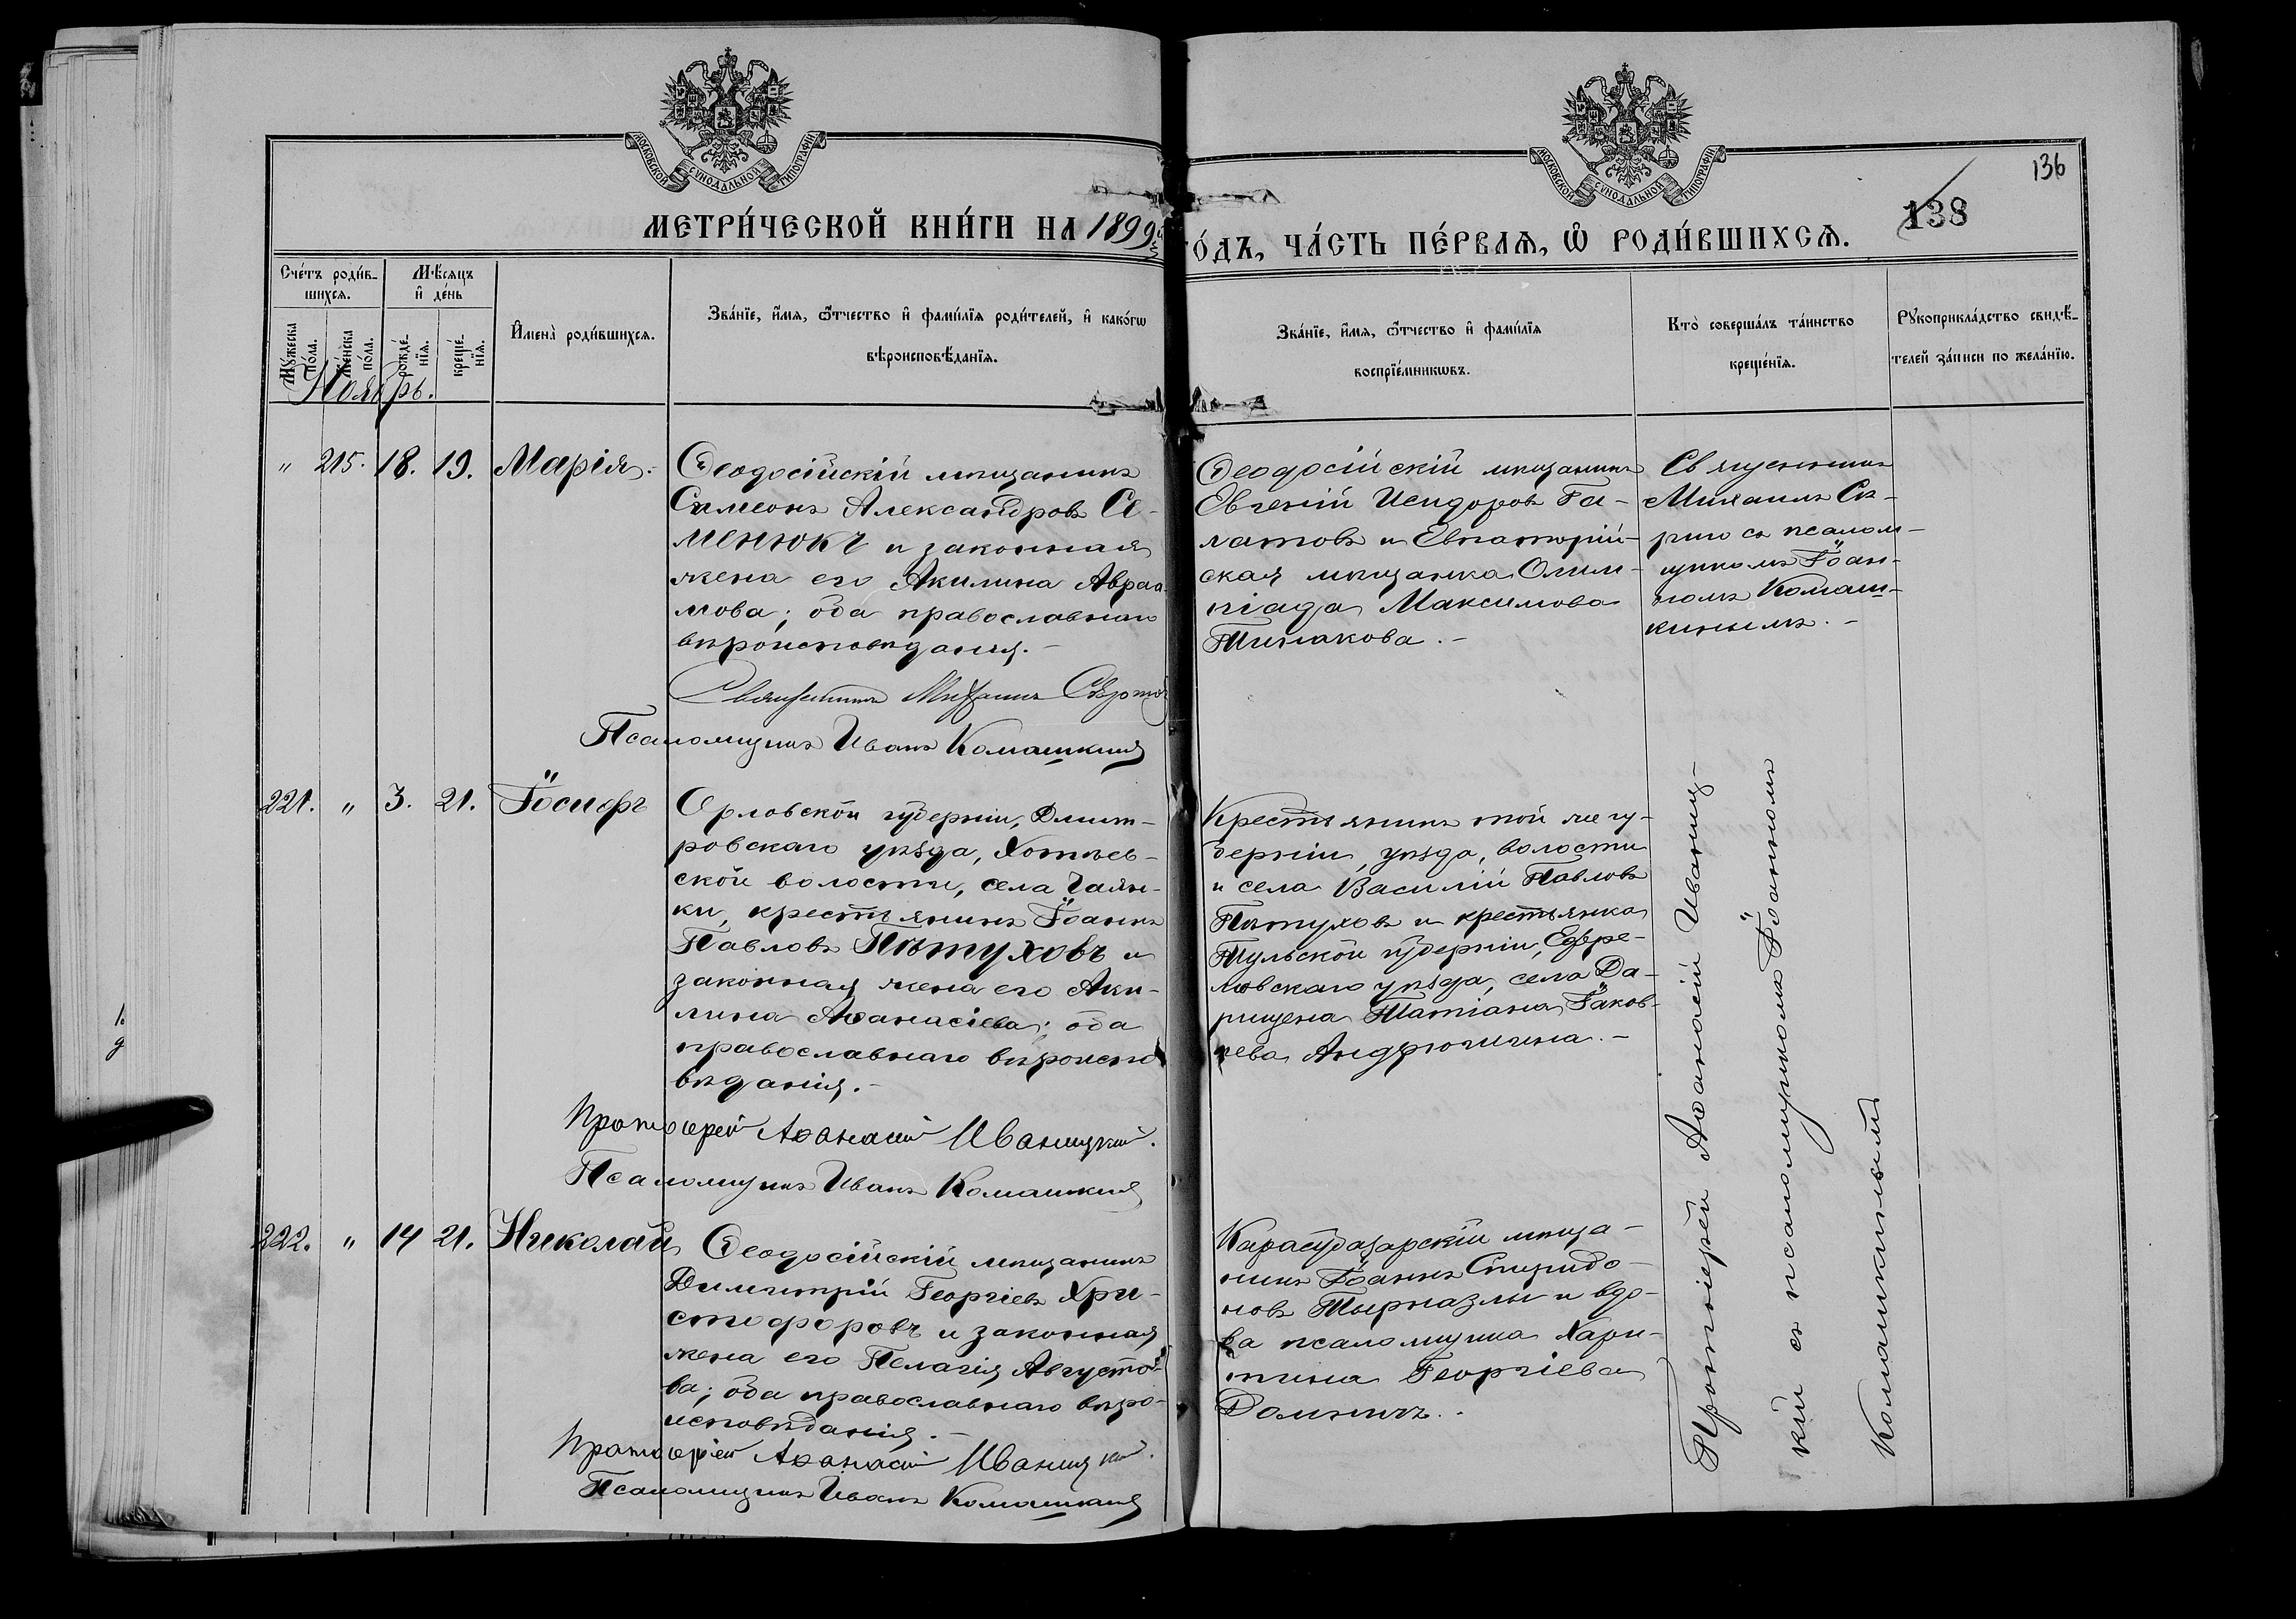 МОСКОВСКОЙ СѴНОДАЛЬНОЙ ТИПОГРАФІИ
МОСКОВСКОЙ СѴНОДАЛЬНОЙ ТИПОГРАФІИ
136
138
МЕТРИ́ЧЕСКОЙ КНИ́ГИ НА 1899
ГО́ДЪ, ЧА́СТЬ ПЕ́РВАѦ, Ѽ РОДИ́ВШИХСѦ.
Сче́тъ роди́в-
шихсѧ.
Мѣ́сѧцъ
и҆ де́нь
Мꙋ́жеска по́ла.
Же́нска по́ла.
рожде́-
нїѧ.
креще́-
нїѧ.
И҆мена̀ роди́вшихсѧ.
Зва́нїе, и҆́мѧ, ѻ҆́тчество и҆ фами́лїѧ роди́телей, и҆ како́гѡ
вѣроисповѣ́данїѧ.
Зва́нїе, и҆́мѧ, ѻ҆́тчество и҆ фами́лїѧ
воспрїе́мникѡвъ.
Кто̀ соверша́лъ та́инство
креще́нїѧ.
Рꙋкоприкла́дство свидѣ́-
телей за́писи по жела́нїю.
Ноябрь.
" 215. 18. 19. Марія.
Ѳеодосійскій мѣщанинъ
Симеонъ Александровъ Се-
менюкъ и законная
жена его Акилина Авраа-
мова; оба православнаго
вѣроисповѣданія.
Священникъ Михаилъ Сѣрго
Псаломщикъ Иванъ Комашкинъ
Ѳеодосійскій мѣщанинъ
Евгеній Исидоровъ Га-
латовъ и Евпаторій-
ская мѣщанка Олим-
піада Максимова
Тинакова.
Священникъ
Михаилъ Сѣ-
рго съ псалом-
щикомъ Іоан-
номъ Комаш-
кинымъ.
221. " 3. 21. Іосифъ
Орловской губерніи, Дмит-
ровскаго уѣзда, Хотѣев-
ской волости, села Галян-
ки, крестьянинъ Іоаннъ
Павловъ Пѣтуховъ и
законная жена его Аки-
лина Аѳанасіева; оба
православнаго вѣроиспо
вѣданія.
Протоіерей Аѳанасій Иваницкій.
Псаломщикъ Иванъ Комашкинъ
Крестьянинъ той же гу-
берніи, уѣзда, волости
и села Василій Павловъ
Пѣтуховъ и крестьянка
Тульской губерніи, Ефре-
мовскаго уѣзда, села Да-
рищена Татіана Іаков-
лева Андрюгина.
222. " 14 21. Николай
Ѳеодосійскій мѣщанинъ
Димитрій Георгіевъ Хри-
стофоровъ и законная
жена его Пелагія Августо-
ва; оба православнаго вѣро-
исповѣданія.
Протоіерей Аѳанасій Иваницкій.
Псаломщикъ Иванъ Комашкинъ
Карасубазарскій мѣща-
нинъ Іоаннъ Спиридо-
новъ Тырназлы и вдо-
ва псаломщика Хари-
тина Георгіева
Домничъ.
Протоіерей Аѳанасій Иваниц-
кій съ псаломщикомъ Іоанномъ
Комашкинымъ